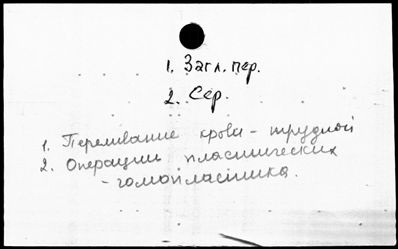 1. Загл. пер.
2. Сер.
1. Переливание крови - трудной
2. Операции пластических
- гомопластика.